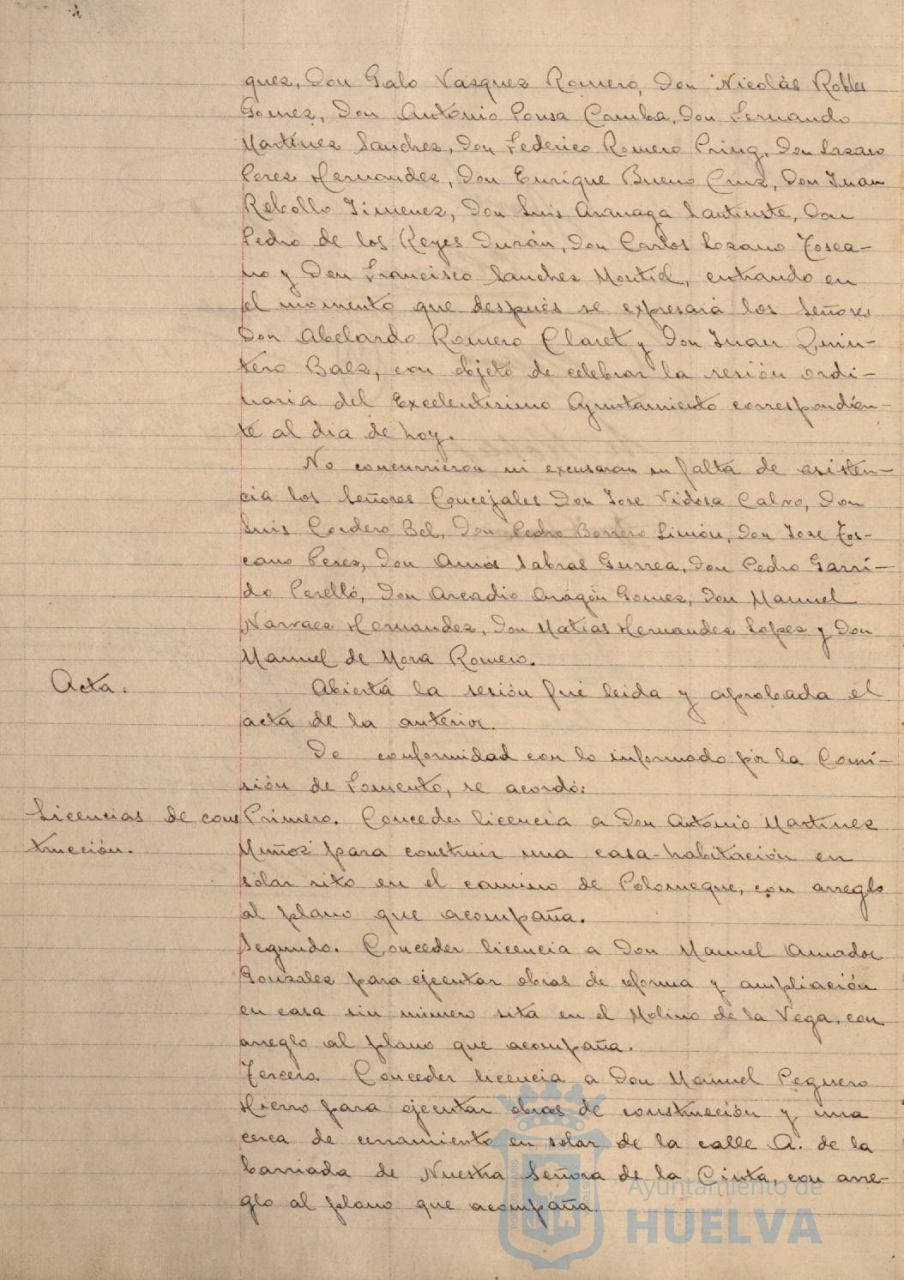 quez, Don Galo Vazquez Romero, Don Nicolás Robles
Gomez, Don António Ponsa Camba, Don Fernando
Martínez Sanchez, Don Federico Romero Pring, Don Lazaro
Perez Hernandez, Don Enrique Bueno Cruz, Don Juan
Rebollo Jimenez, Don Luis Aranaga Santiuste, Don
Pedro de los Reyes Durán, Don Carlos Lozano Tosca-
no y Don Francisco Sanchez Montiel, entrando en
el momento que después se expresará los Señores
Don Abelardo Romero Claret y Don Juan Quin-
tero Baez, con objeto de celebrar la sesión ordi-
naria del Excelentísimo Ayuntamiento correspondien-
te al dia de hoy.
No concurrieron ni excusaron su falta de asisten-
cia los Señores Concejales Don Jose Vidosa Calvo, Don
Luis Cordero Bel, Don Pedro Borrero Limón, Don Jose Tos-
cano Perez, Don Amos Sabras Gurrea, Don Pedro Garri-
do Perelló, Don Arcadio Aragón Gomez, Don Manuel
Narvaez Hernandez, Don Matías Hernandez Lopez y Don
Manuel de Mora Romero.
Acta. Abierta la sesión fué leida y aprobada el
acta de la anterior.
De conformidad con lo informado por la Comi-
sión de Fomento, se acordó:
Licencias de cons Primero. Conceder licencia a Don Antonio Martinez
trucción. Muñoz para construir una casa-habitación en
solar sito en el camino de Polomeque, con arreglo
al plano que acompaña.
Segundo. Conceder licencia a Don Manuel Amador
Gonzalez para ejecutar obras de reforma y ampliación
en casa sin número sita en el Molino de la Vega, con
arreglo al plano que acompaña.
Tercero. Conceder licencia a Don Manuel Peguero
Hierro para ejecutar obras de construcción y una
cerca de cerramiento en solar de la calle A. de la
barriada de Nuestra Señora de la Cinta, con arre-
glo al plano que acompaña.
Ayuntamiento de
HUELVA